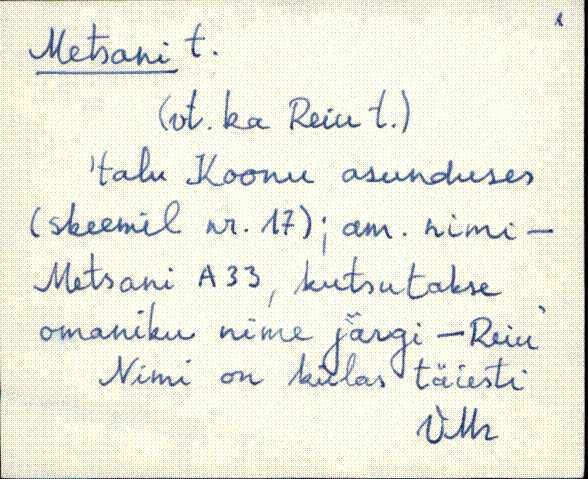 Metsani t.
(vt. ka Reiu t.)
'talu Koonu asunduses
(skeemil nr. 17); am. nimi –
Metsani A33, kutsutakse
omaniku nime järgi – Reiu'
Nimi on külas täiesti